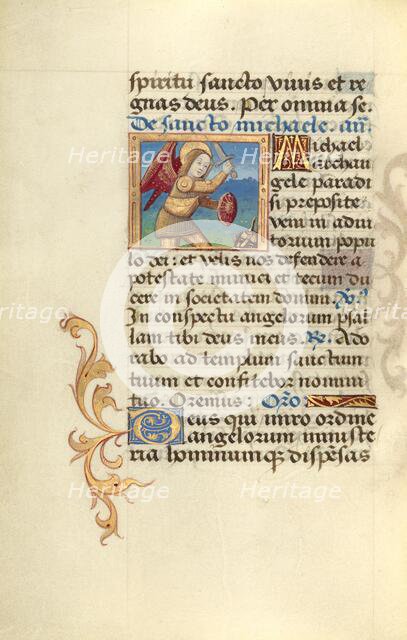 spiritu sancto vivis et re
gnas deus. Per omnia se.
De sancto michaele. añ.
Michael
archan
gele paradi
si preposite
veni in adiu
torium popu
lo dei: et velis nos defendere a
potestate inimici et tecum du
cere in societatem domini. V.
In conspectu angelorum psal
lam tibi deus meus. R. Ado
rabo ad templum sanctum
tuum et confitebor nomini
tuo. Oremus: Orõ:
Deus qui miro ordine
angelorum ministe
ria hominumqz dispẽsas